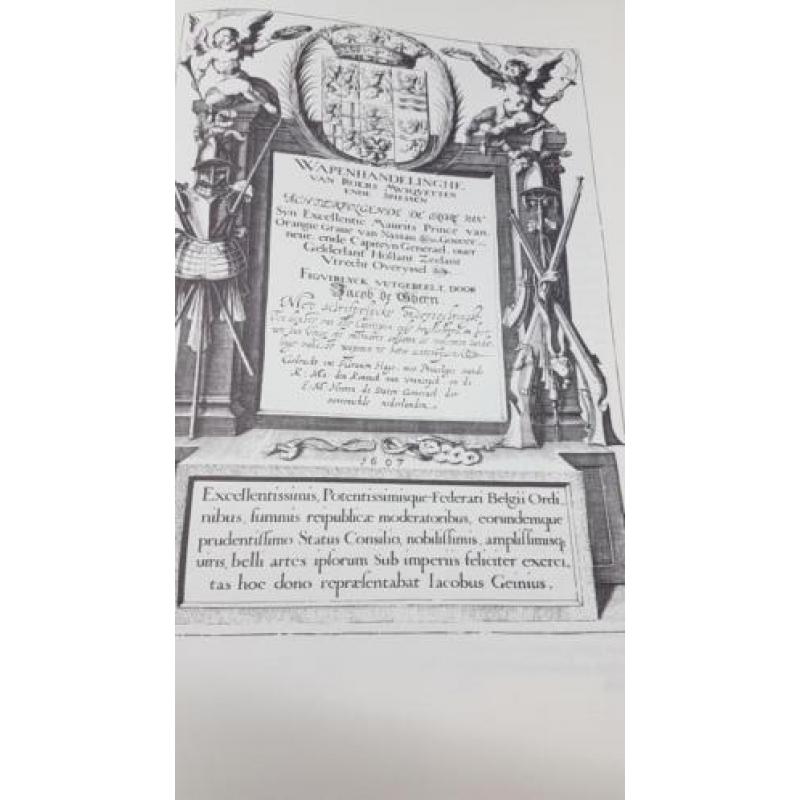 WAPENHANDELINGHE
VAN ROERS MVSQVETTEN
ENDE SPIESSEN
ACHTERVOLGENDE DE ORDRE VAN
Syn Excellentie Maurits Prince van
Orangie Graue van Nassau &c. Gouver
neur ende Capiteyn Generael over
Gelderlant Hollant Zeelant
Vtrecht Overyssel &c.
FIGVERLYCK VUTGEBEELT, DOOR
Jacob de Gheyn
Met schriftelijcke
Gedruckt int Graven Hage, met Privilegie vande
K. Ma. den Coninck van Vranryck en de
E. M. Heeren de Staten Generael der
nederlanden.
1607
Excellentissimis, Potentissimisque Federati Belgii Ordi
nibus, summis reipublicæ moderatoribus, eorundemque
prudentissimo Status Consilio, nobilissimis, amplissimisq
uiris, belli artes ipsorum Sub imperiis feliciter exerci,
tas hoc dono repræsentabat Iacobus Geinius.